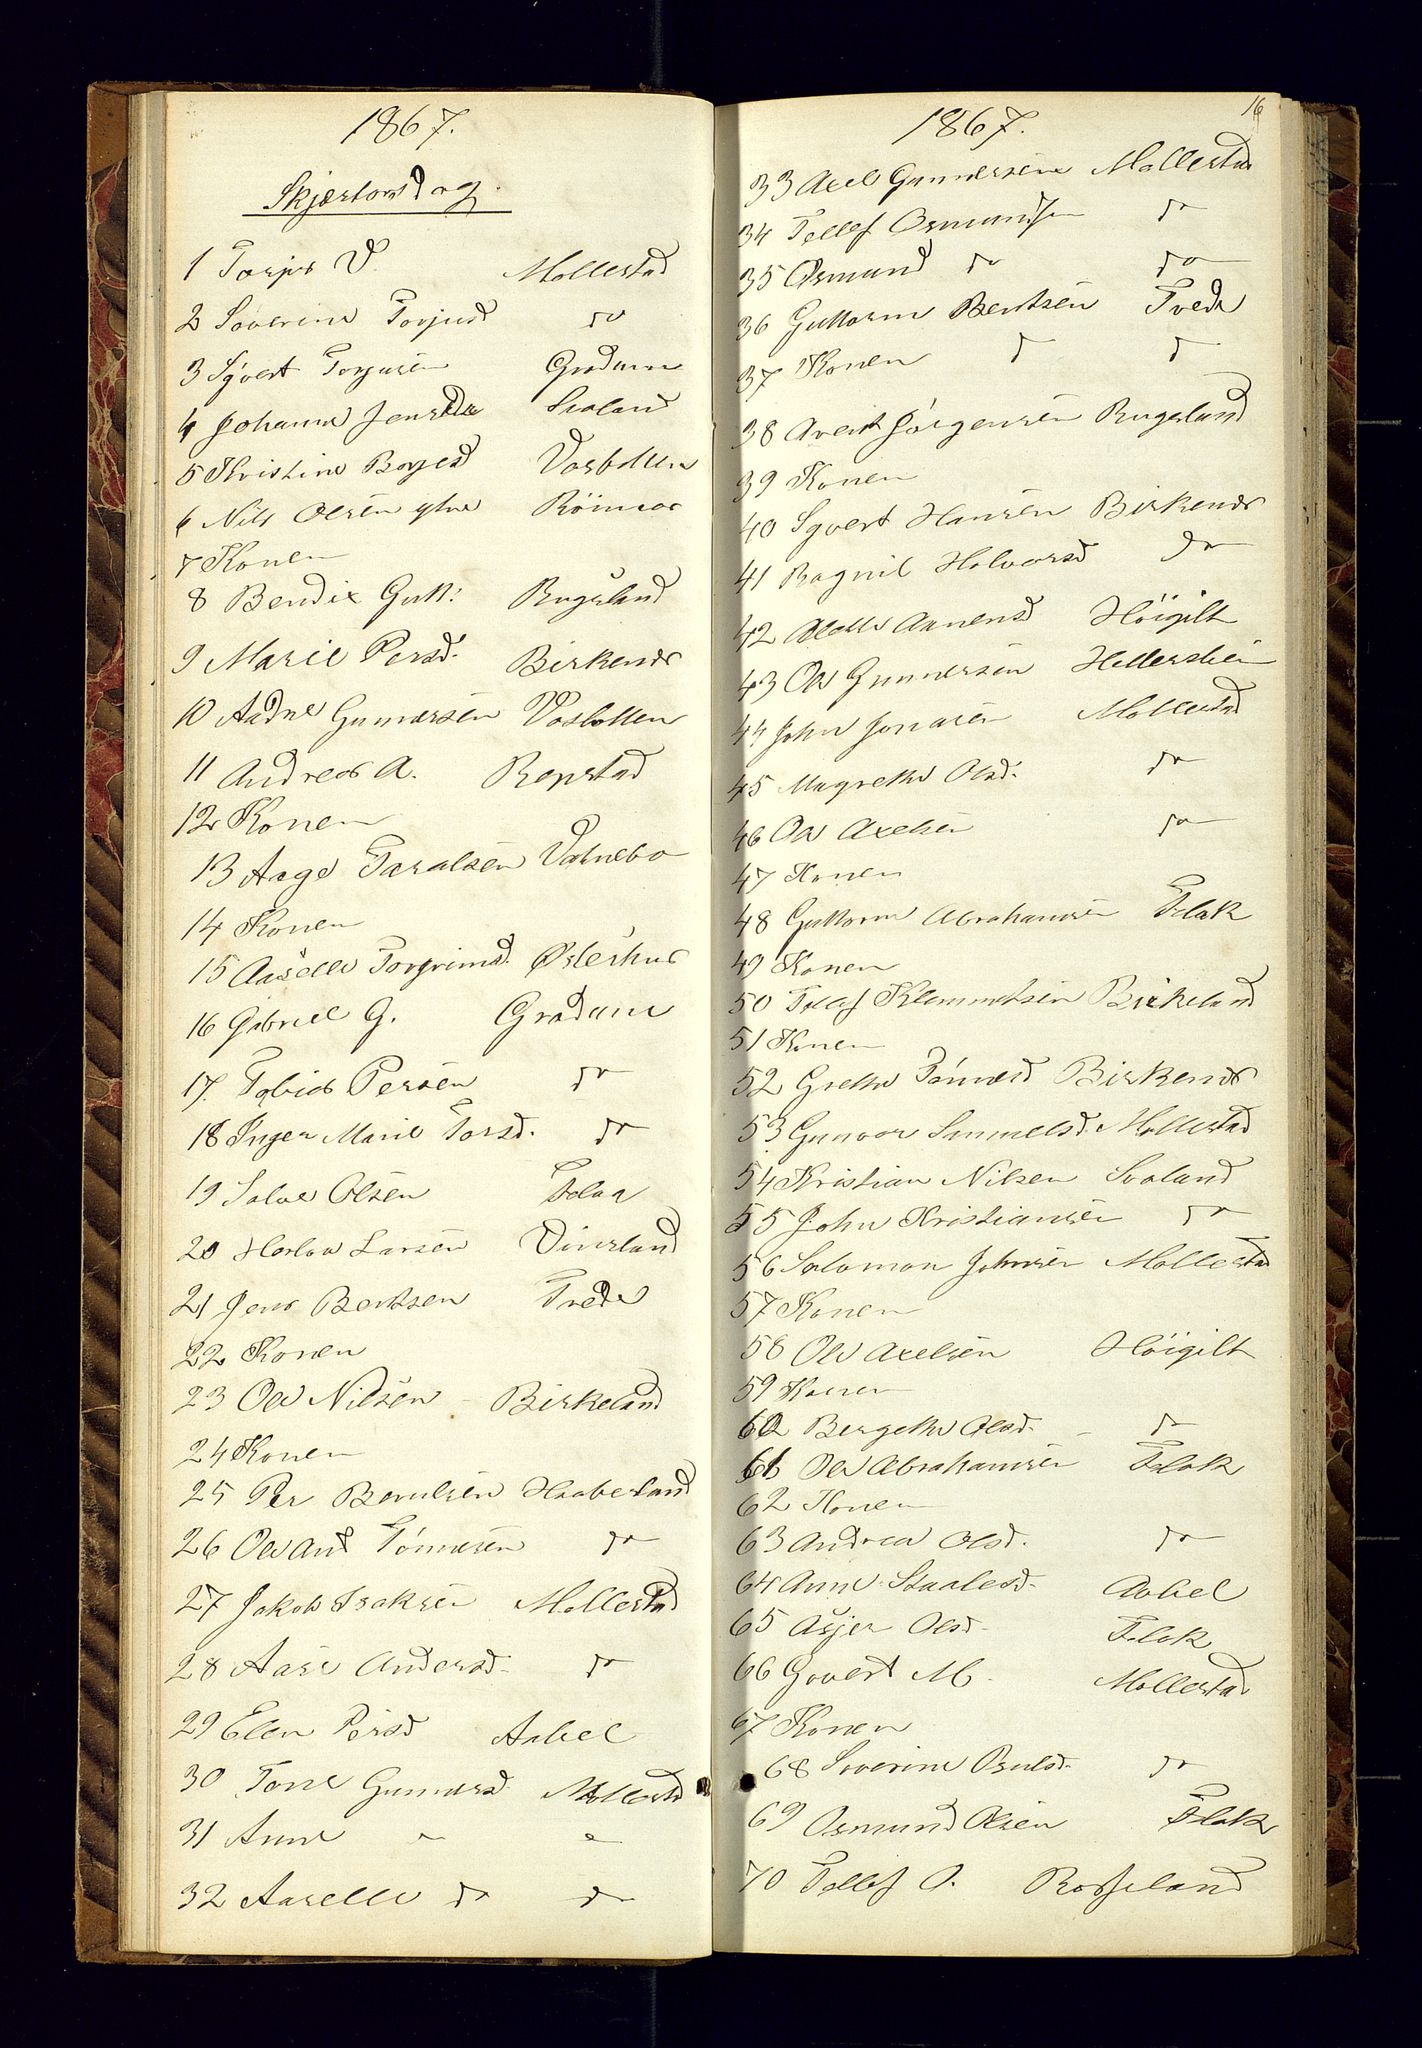 1867.
Skjærtorsdag.
1 Torjus V. Mollestad
2 Soverine Torjusd do
3 Sÿvert Torjusen Gradum
4 Johanne Jensda Svaland
5 Kristine Borjesd Vasbotten
6 Nils Olsen
7 Konen
8 Bendix Gutt: Rugsland
9 Marie Persd. Birkenes
10 Aadne Gunnersen Vasbotten
11 Andreas A. Repstad
12 Konen
13 Aage Taralsen Vatnebo
14 Konen
15 Aaselle Torgrimsd. Østerhus
16 Gabriel G. Gradum
17. Tobias Persen do
18 Inger Marie Torsd. do
19 Salve Olsen Flaa
20 Larsen
21 Jens Bentsen Tvede
22 Konen
23 Ole Nilsen - Birkeland
24 Konen
25 Per Berulsen Haabesland
26 Ole And Tönnesen do
27 Jakob Isaksen Mollestad
28 Aase Andersd. do
29 Elen Persd Aabel
30 Tone Gunnersd Mollestd
31 Anne " "
32 Aaselle do do
16
1867.
33 Axel Gunnersen Mollestad
34 Tellef Osmundsen do
35 Osmund do do
36 Guttorm Bentsen Tvede
37 Konen d d
38 Avert Jörgensen Rugsland
39 Konen
40 Syvert Hansen Birkenes
41 Ragnil Halvorsd do
42 Aanensd Höigilt
43 Ole Gunnersen Hellerslien
44 John Jonasen Mollestad
45 Magrethe Olsd. do
46 Ole Axelsen do
47 Konen
48 Guttorm Abrahamsen Flak
49 Konen
50 Tellef Klemmetsen Birkeland
51 Konen
52 Grethe Tönnesd Birkenes
53 Gunvor Samuelsd. Mollestad
54 Kristian Nilsen Svaland
55 John Kristiansen do
56 Salomon Johnsen Mollestad
57 Konen
58 Ole Axelsen Höigilt
59 Konen
60 Bergethe Olsd. - do
61 Ole Abrahamsen Flak
62 Konen
63 Andrea Olsd. do
64 Anne Staalesd. Aabel
65 Asjer Olsd. Flak
66 Govert M. Mollestad
67 Konen
68 Soverine do
69 Osmund Olsen Flak
70 Tellef O. Rosseland